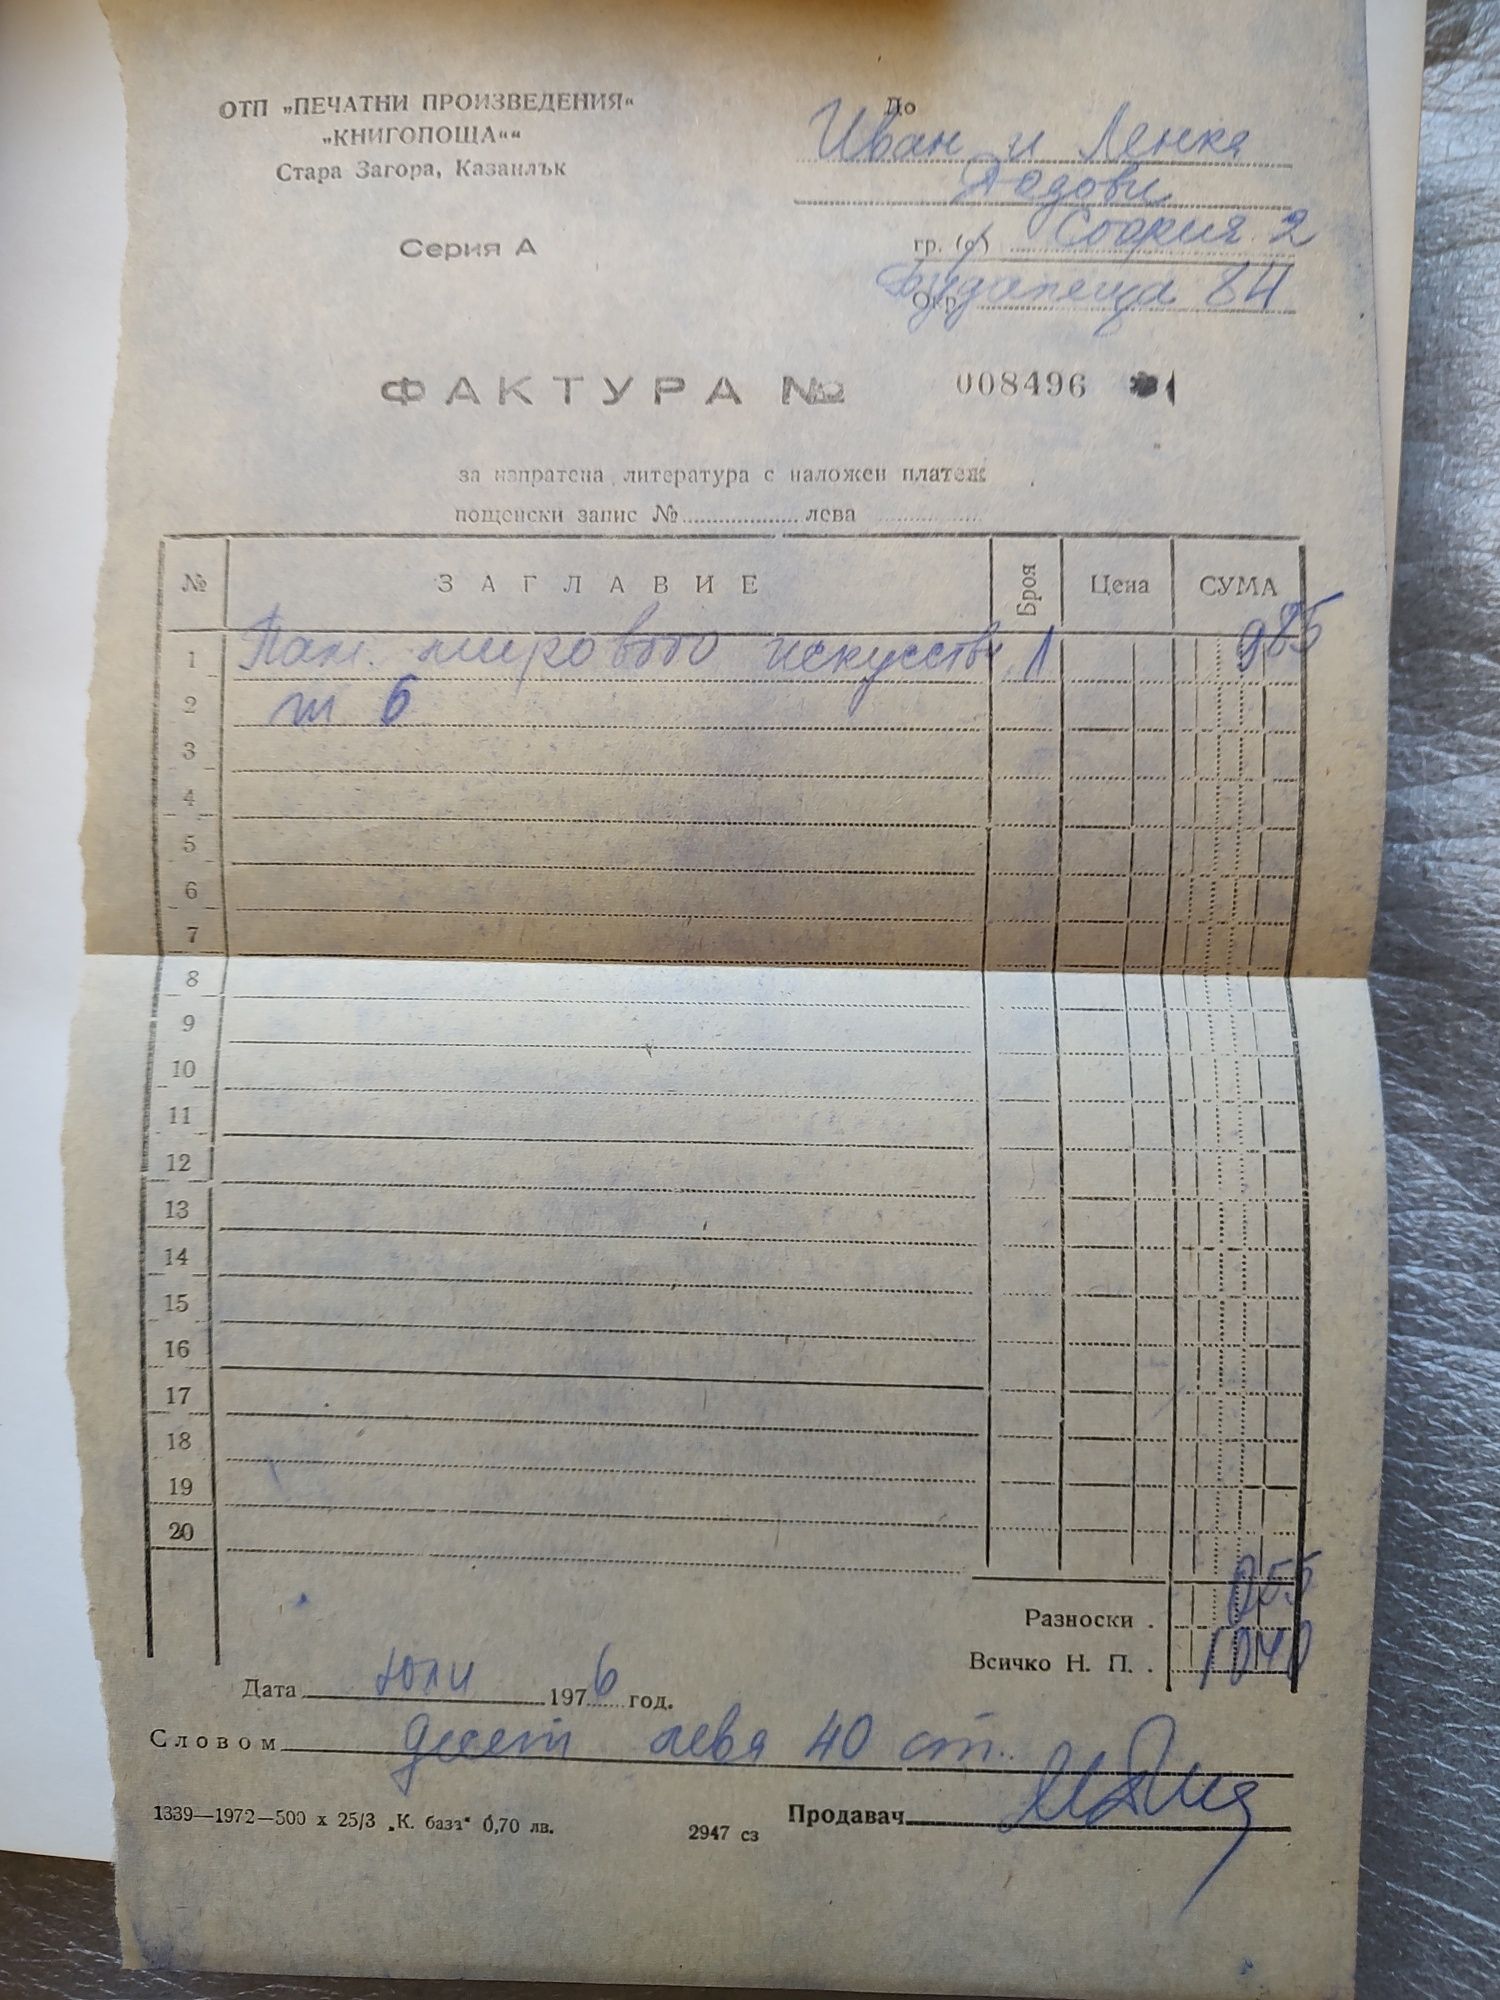 ОТП „ПЕЧАТНИ ПРОИЗВЕДЕНИЯ“
„КНИГОПОЩА““
Стара Загора, Казанлък
Серия А
До
Иван и Ленка
гр. (с) София 2
Окр. Будапеща 84
ФАКТУРА № 008496
за изпратена литература с наложен платеж
пощенски запис № лева
№ ЗАГЛАВИЕ Броя Цена СУМА
1 Пам. мирового искусства 1 985
2 т 6
3
4
5
6
7
8
9
10
11
12
13
14
15
16
17
18
19
20
Разноски . 055
Всичко Н. П. . 1040
Дата Юли 1976 год.
Словом десет лева 40 ст.
Продавач
1339—1972—500 х 25/3 „К. база“ 0,70 лв. 2947 сз